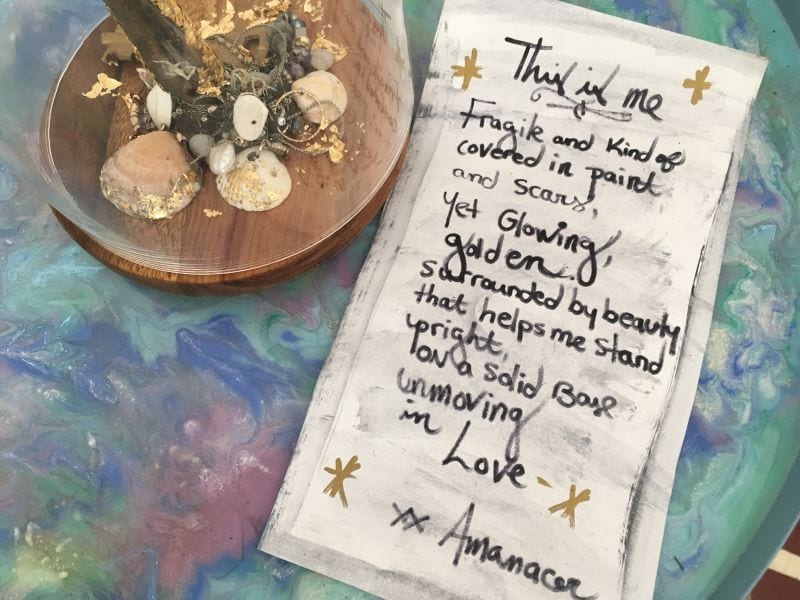 This is me
Fragile and Kind of
covered in paint
and scars,
yet Glowing,
golden.
surrounded by beauty
that helps me stand
upright,
on a solid Base
unmoving
in Love
xx Amanacer